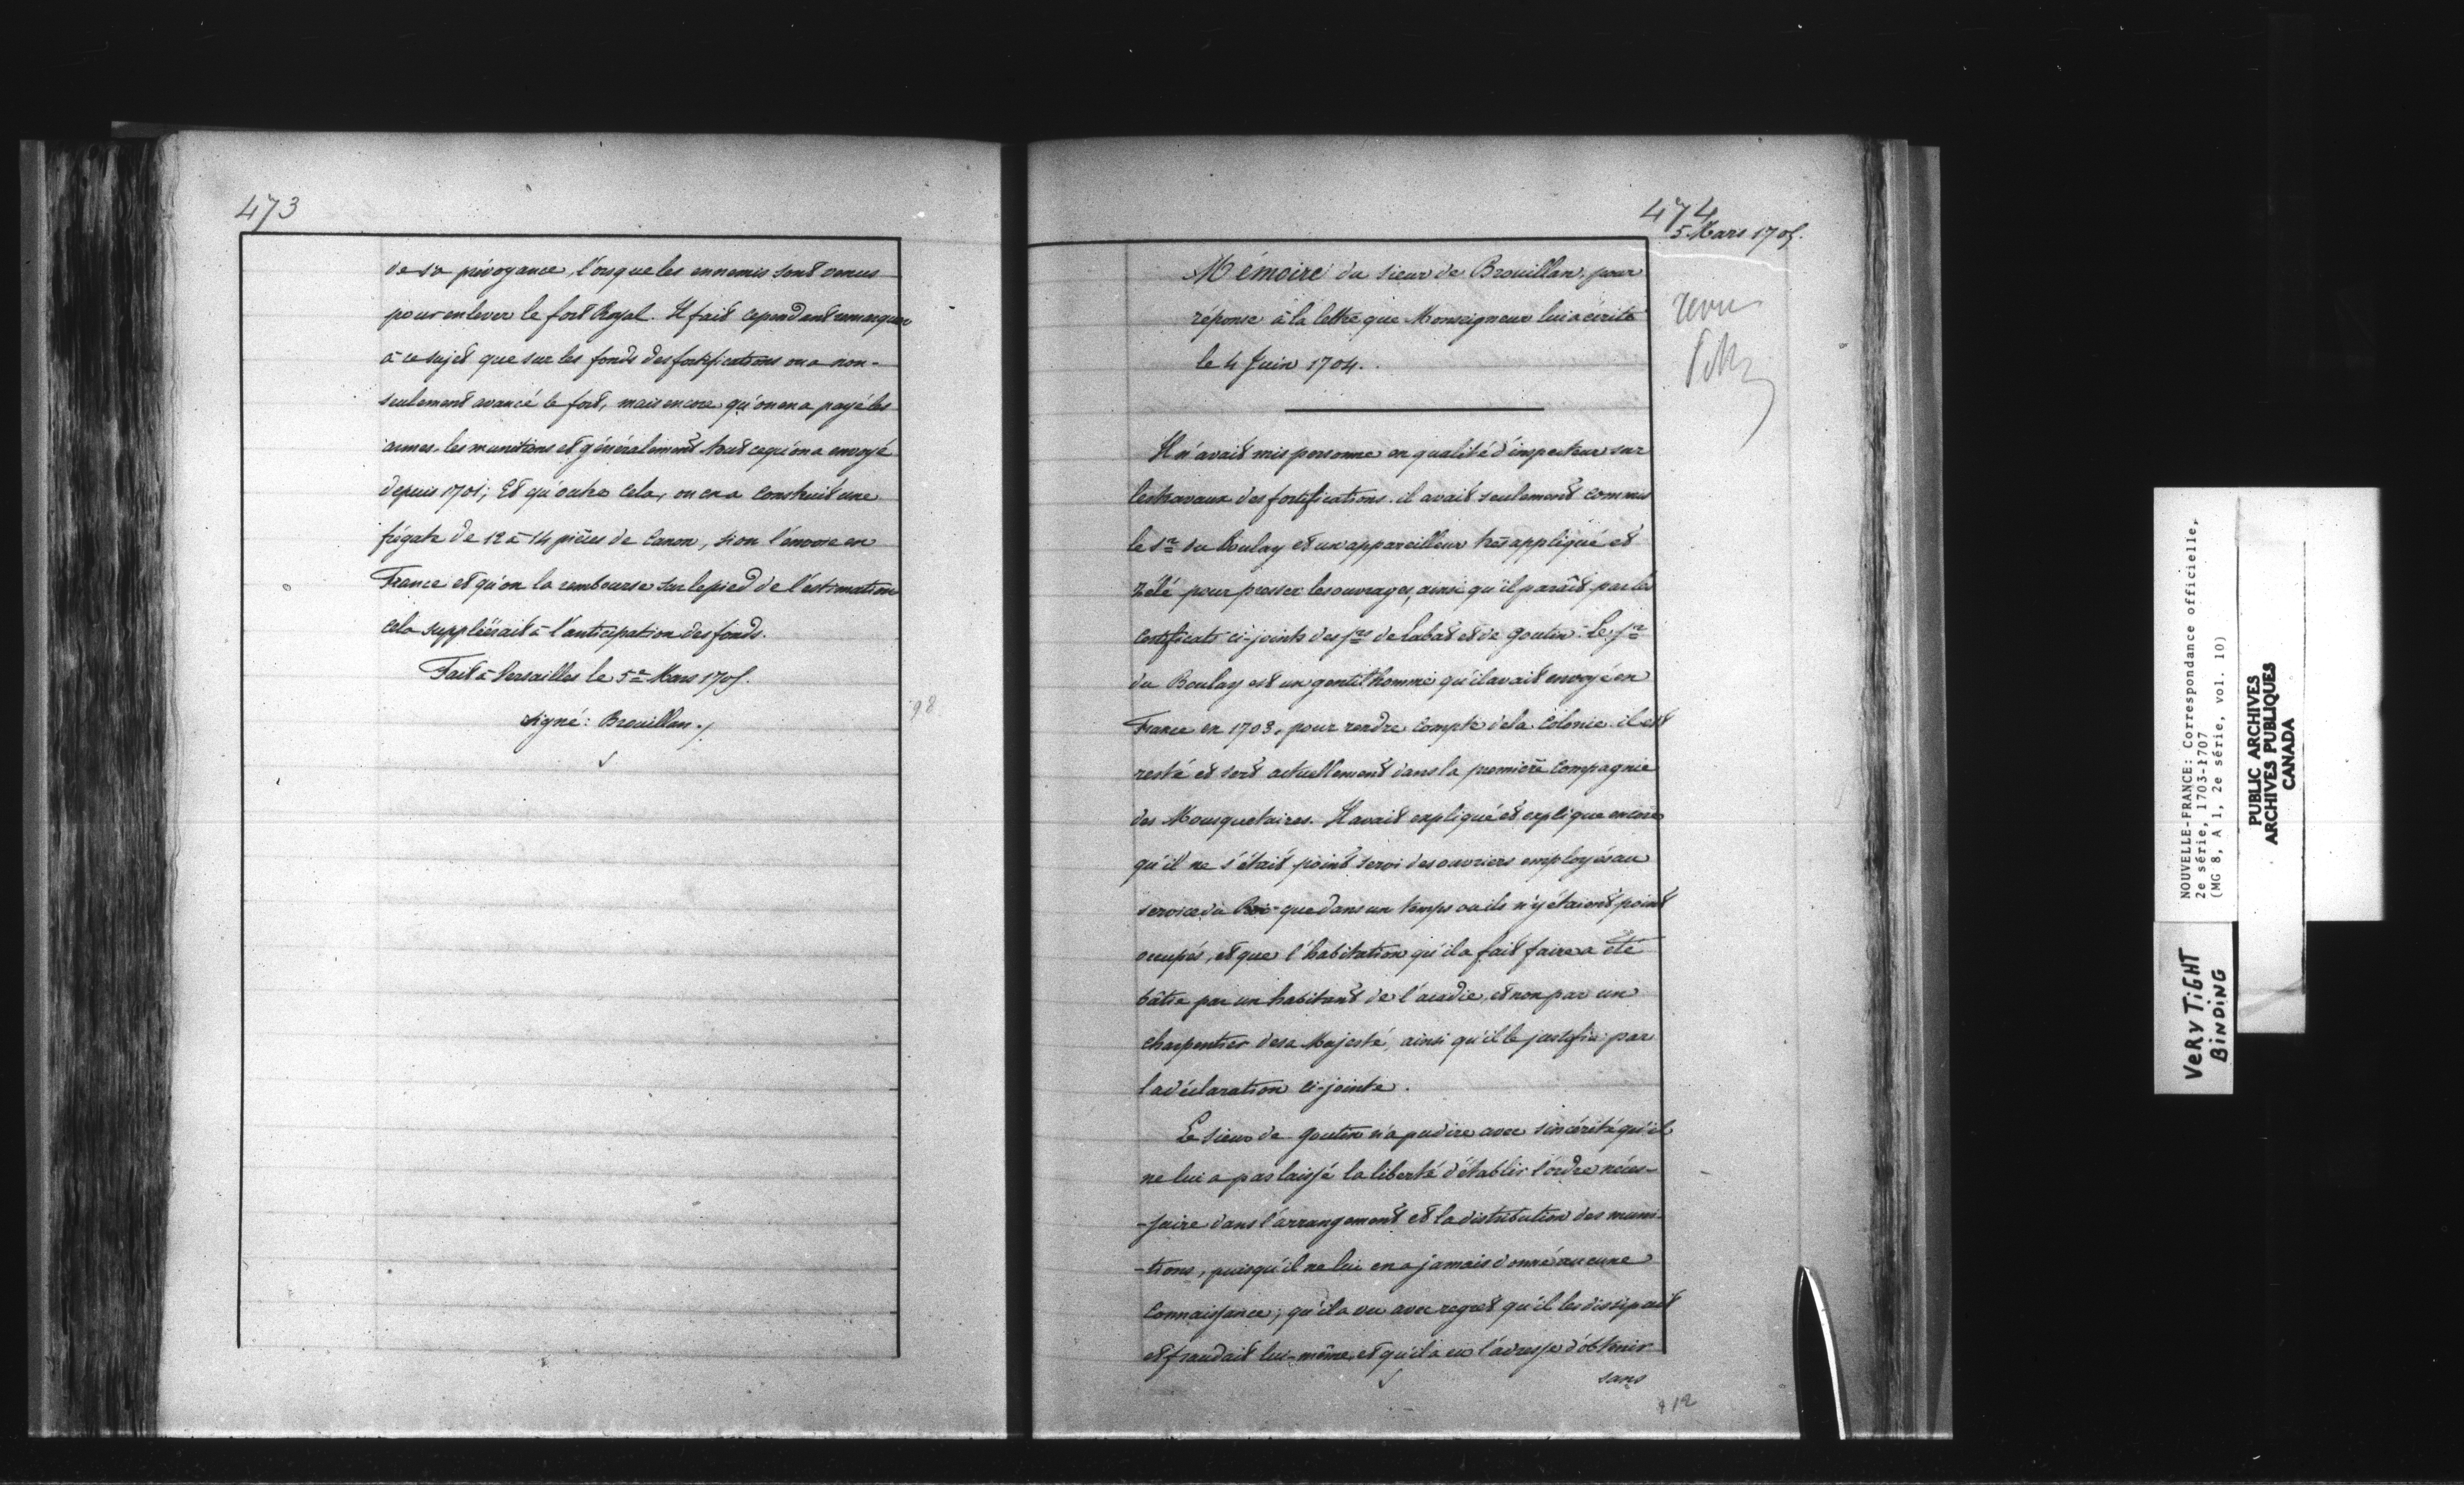 473
de sa prévoyance, lorsque les ennemis sont venus
pour enlever le fort Royal. Il fait cependant remarquer
à ce sujet que sur les fonds des fortifications on a non-
seulement avancé le fort, mais encore qu'on en a payé les
armes, les munitions et généralement tout ce qu'on a envoyé
depuis 1701; Et qu'outre cela, on en a construit une
frégate de 12 à 14 pièces de Canon, si on l'envoie en
France et qu'on la rembourse sur le pied de l'estimation
cela suppléerait à l'anticipation des fonds.
Fait à Versailles le 5e Mars 1705.
signé: Brouillan./.
98
474
5 Mars 1705.
Mémoire du sieur de Brouillan, pour
réponse à la lettre que Monseigneur lui a écrite
le 4 Juin 1704.
revu
Il n'avait mis personne en qualité d'inspecteur sur
les travaux des fortifications. il avait seulement commis
le Sr. du Boulay et un appareilleur très appliqué et
zélé pour presser les ouvrages, ainsi qu'il paraît par les
certificats ci-joints des Srs de Labat et de Goutin. Le Sr
du Boulay est un gentilhomme qu'il avait envoyé en
France en 1703, pour rendre compte de la Colonie. il est
resté et sert actuellement dans la première Compagnie
des Mousquetaires. Il avait expliqué et explique encore
qu'il ne s'était point servi des ouvriers employés au
service du Roi que dans un temps ou ils n'y étaient point
occupés, et que l'habitation qu'il a fait faire a été
bâtie par un habitant de l'acadie, et non par un
charpentier de sa Majesté, ainsi qu'il le justifie par
la déclaration ci-jointe.
Le sieur de Goutin n'a pu dire avec sincérité qu'il
ne lui a pas laissé la liberté d'établir l'ordre néces-
-saire dans l'arrangement et la distribution des muni-
-tions, puisqu'il ne lui en a jamais donné aucune
Connaissance; qu'il a vu avec regret qu'il les dissipait
et fraudait lui-même, et qu'il a eu l'adresse d'obtenir
sans
912
NOUVELLE-FRANCE: Correspondance officielle,
2e série, 1703-1707
(MG 8, A 1, 2e série, vol. 10)
PUBLIC ARCHIVES
ARCHIVES PUBLIQUES
CANADA
VERY TiGHT
BiNDiNG